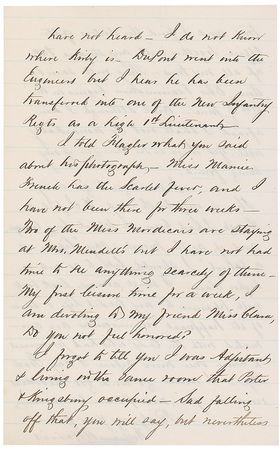 have not heard – I do not know
where Kirby is – DuPont went into the
Engineers but I hear he has been
transferred into one of the New Infantry
Regts as a high 1st Lieutenant
I told Flagler what you said
about his photograph – Miss Mamie
French has the Scarlet fever, and I
have not been there for three weeks –
Two of the Miss Mordecais are staying
at Mrs. Mendell's but I have not had
time to see anything scarcely of them –
My first leisure time for a week, I
am devoting to my friend Miss Clara,
Do you not feel honored?
I forgot to tell you I was Adjutant
& living in the same room that Porter
& Kingsbury occupied – Sad falling
off that, you will say, but nevertheless